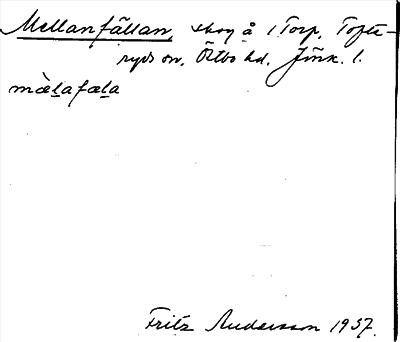 Mellanfällan, skog å 1 Torp, Tofte-
ryds sn, Östbo hd, Jönk. l.
mæ̀lafæla
Fritz Andersson 1937.